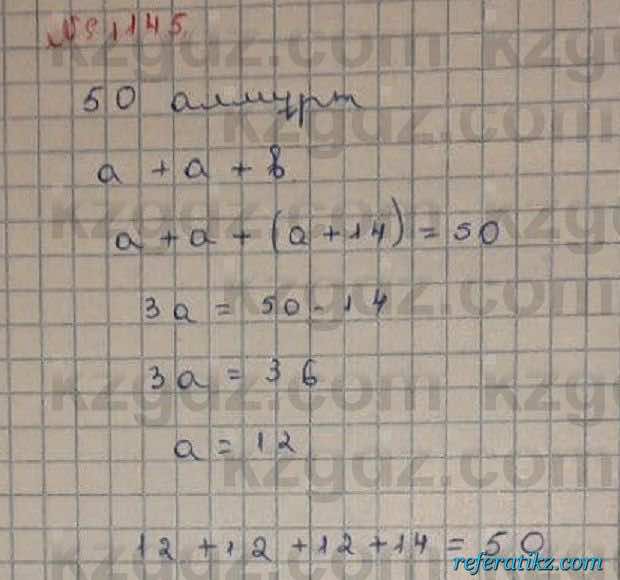 № 1145.
50 алмұрт
a + a + b
a + a + (a + 14) = 50
3a = 50 - 14
3a = 36
a = 12
12 + 12 + 12 + 14 = 50
referatikz.com
kzgdz.com